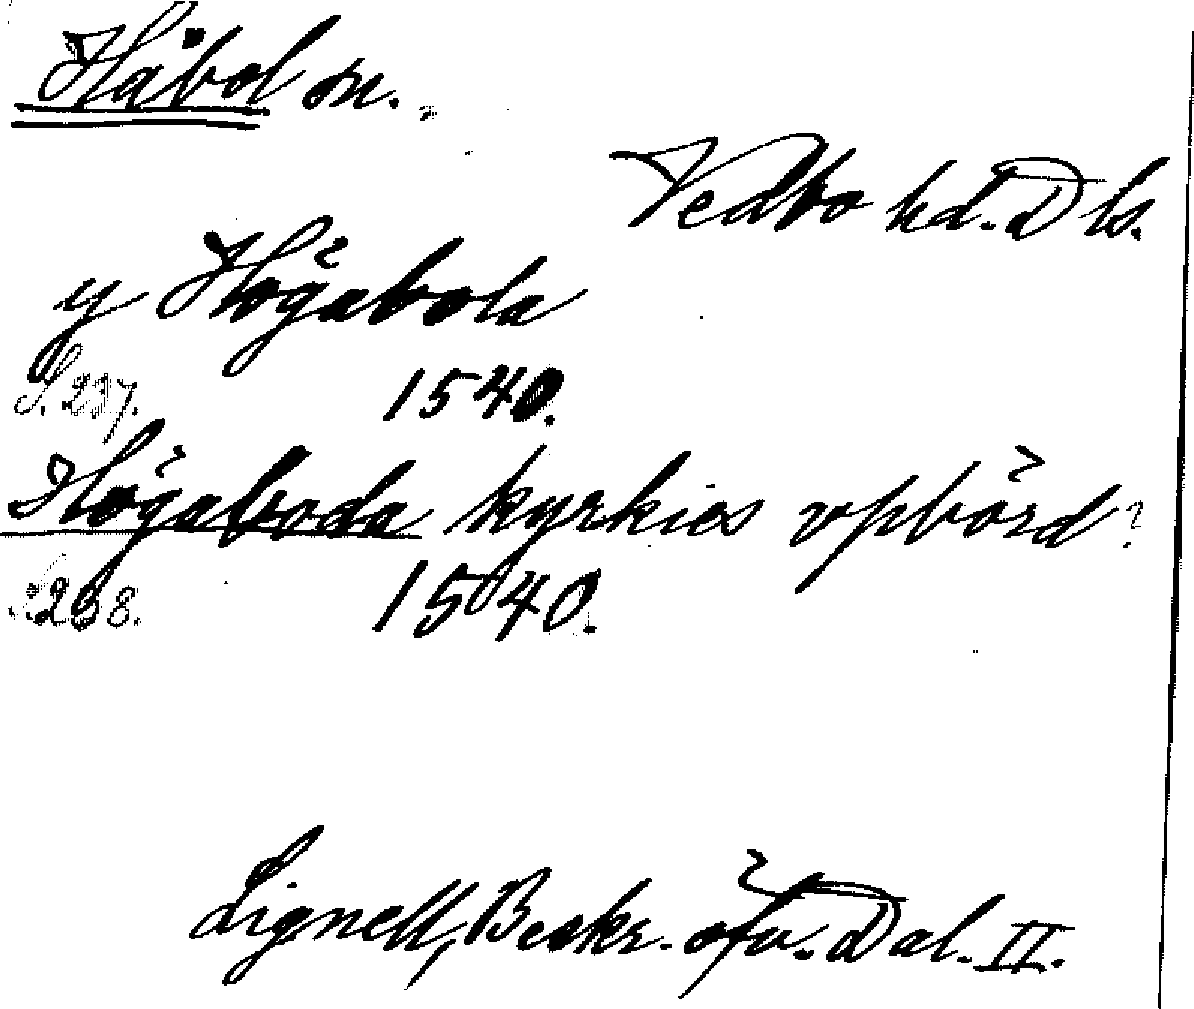 Håbol sn.
Vedbo hd. Dls.
y Högabola
S. 237. 1540.
Högaboda kyrkies vpbörd?
S. 238. 1540.
Lignell, Beskr. öfv. Dal. II.